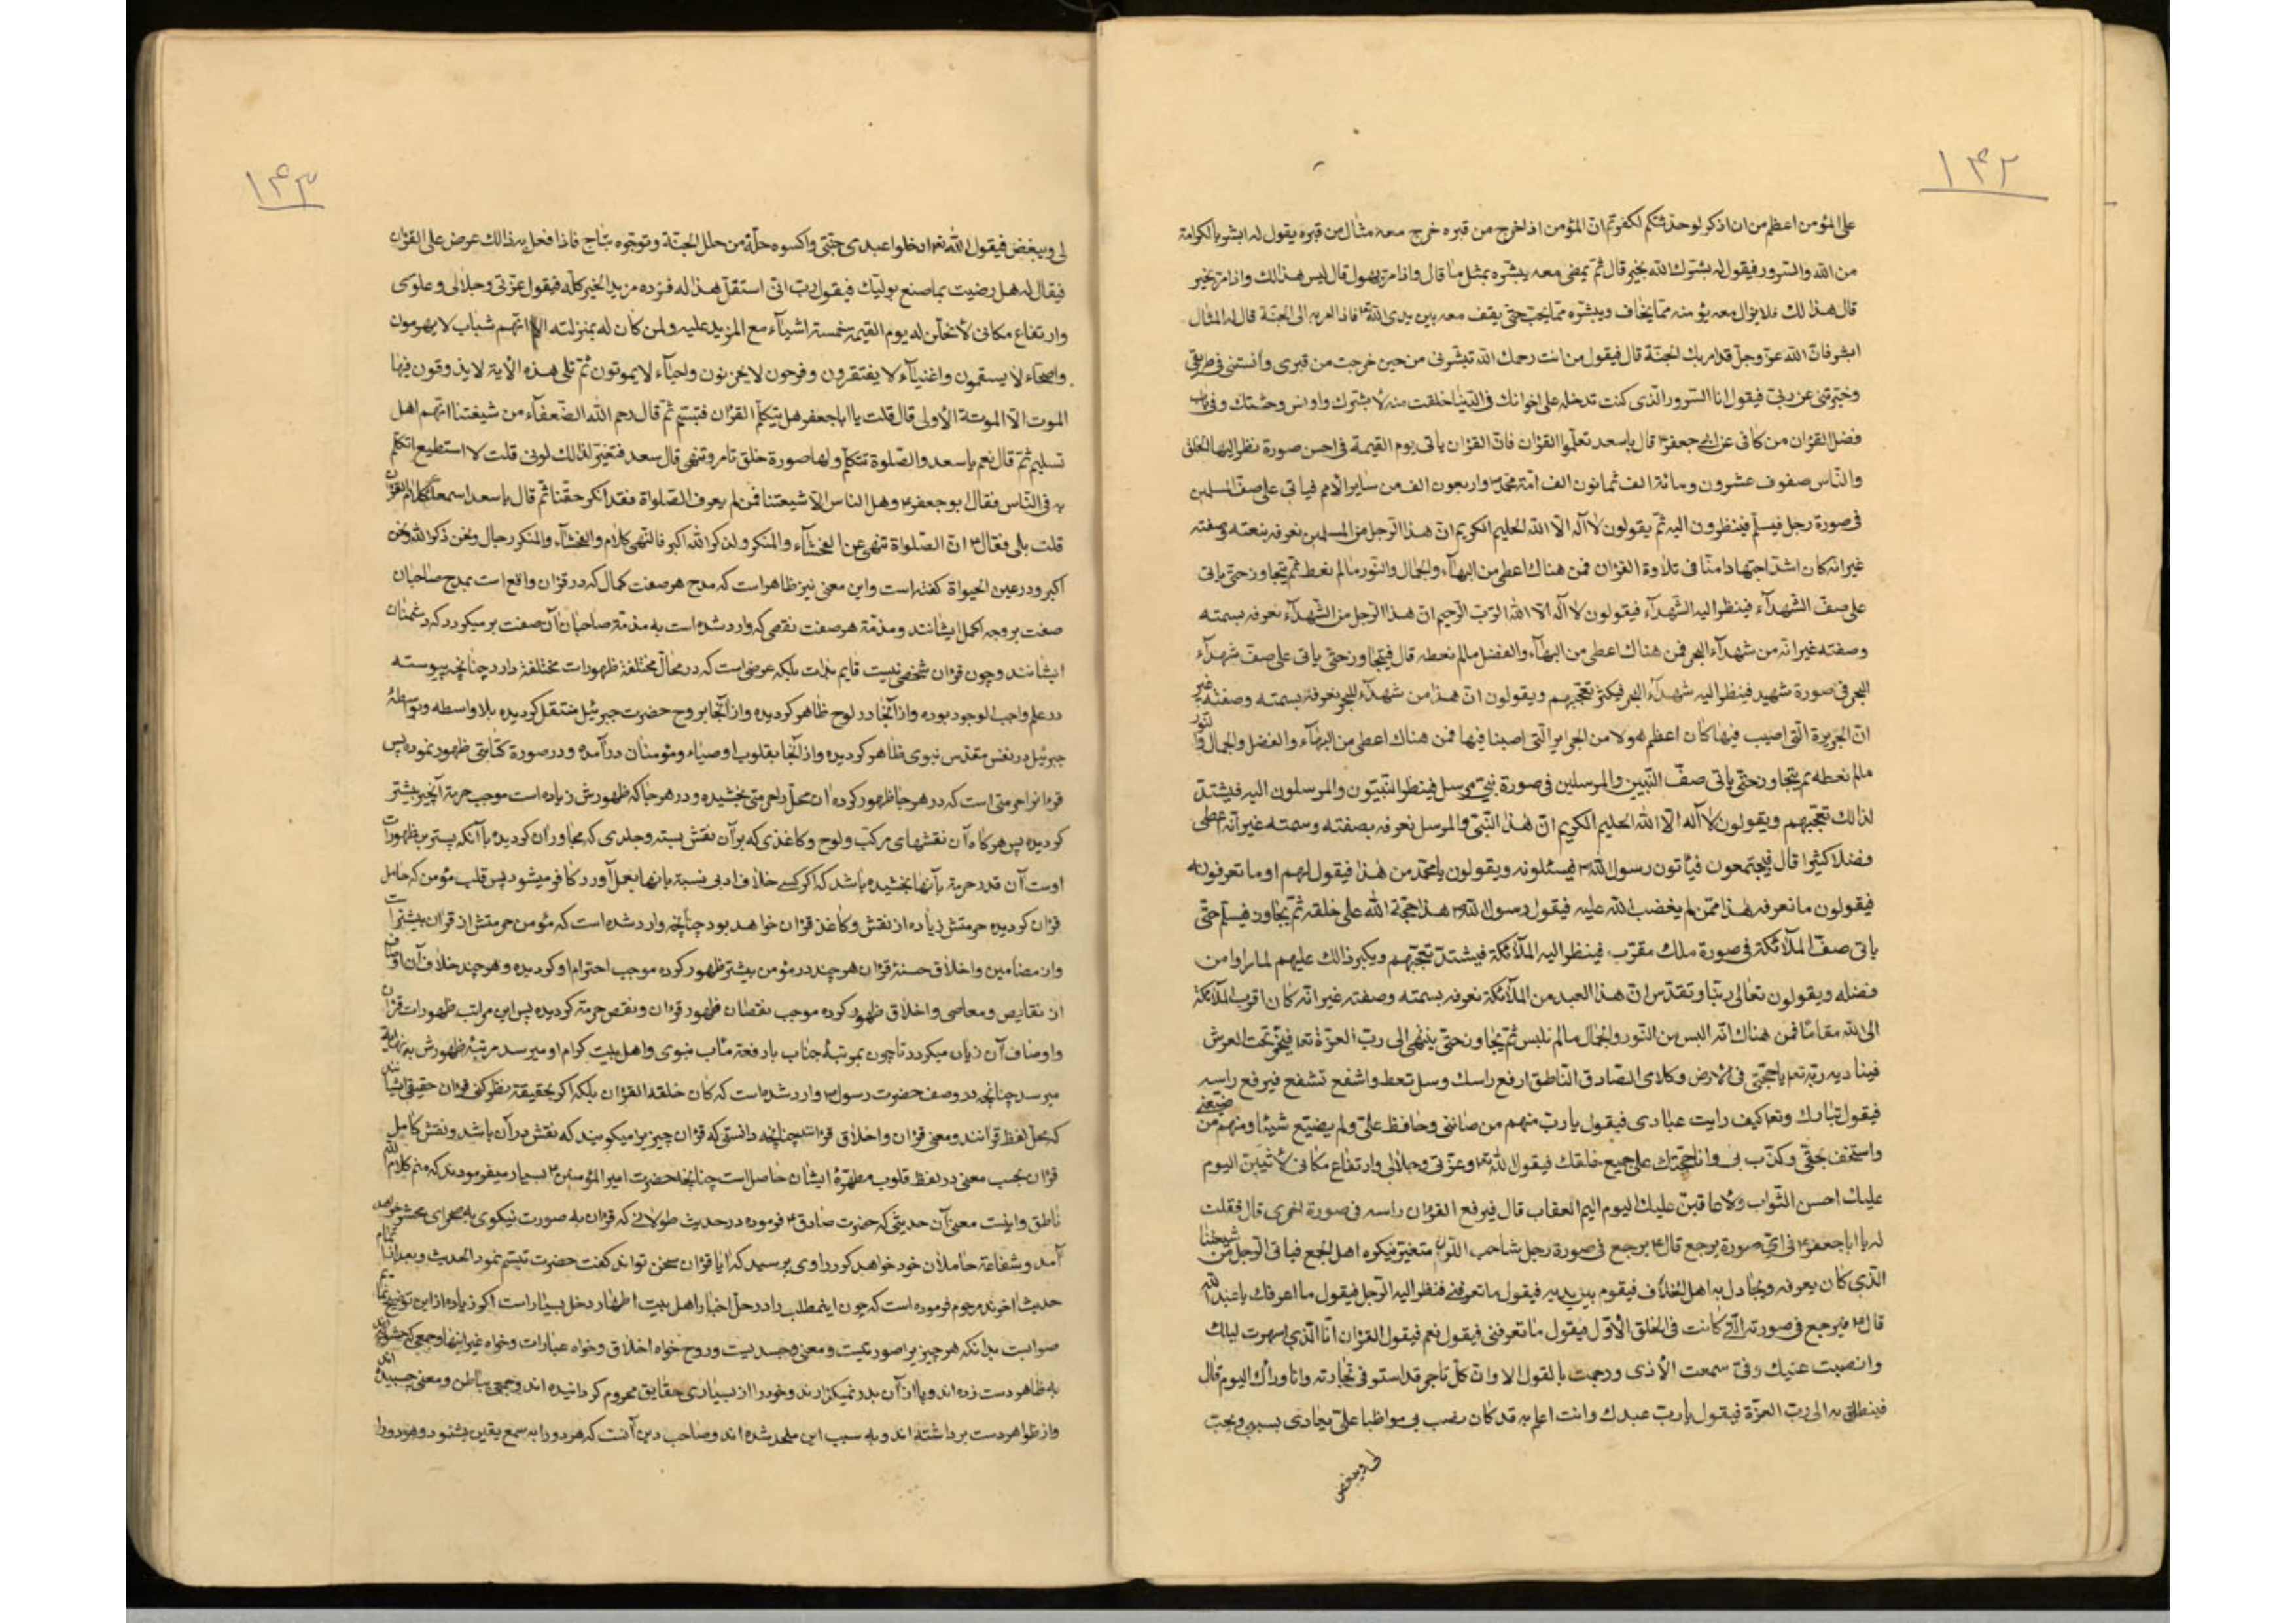 ١٤٢
على المؤمن اعظم من ان اذكر لو حدثتكم لكفرتم ان المؤمن اذا خرج من قبره خرج معه مثال من قبره يقول له ابشر بالكرامة
من الله والسرور فيقول له بشرك الله بخير قال ثم يمضى معه يبشره بمثل ما قال واذا مر بهول قال ليس هذا لك واذا مر بخير
قال هذا لك فلا يزال معه يؤمنه مما يخاف ويبشره مما يحب حتى يقف معه بين يدى الله فاذا امر به الى الجنة قال له المثال
ابشر فان الله عز وجل قد امر بك الجنة قال فيقول من انت رحمك الله تبشرنى من حين خرجت من قبرى وآنستنى فى طريقى
وخبرتنى عن ربى فيقول انا السرور الذى كنت تدخله على اخوانك فى الدنيا خلقت منه لأبشرك واونس وحشتك وفى باب
فضل القرآن من كافى عن ابى جعفر قال يا سعد تعلموا القرآن فان القرآن ياتى يوم القيمة فى احسن صورة نظر اليها الخلق
والناس صفوف عشرون ومائة الف ثمانون الف امة محمد واربعون الف من ساير الامم فياتى على صف المسلمين
فى صورة رجل فيسلم فينظرون اليه ثم يقولون لا اله الا الله الحليم الكريم ان هذا الرجل من المسلمين نعرفه بنعته وصفته
غير انه كان اشد اجتهادا منا فى تلاوة القرآن فمن هناك اعطى من البهاء والجمال والنور ما لم نعط ثم يتجاوز حتى ياتى
على صف الشهدآء فينظر اليه الشهدآء فيقولون لا اله الا الله الرب الرحيم ان هذا الرجل من الشهدآء نعرفه بسمته
وصفته غير انه من شهدآء البحر فمن هناك اعطى من البهآء والفضل ما لم نعطه قال فيتجاوز حتى ياتى على صف شهدآء
البحر فى صورة شهيد فينظر اليه شهدآء البحر فيكثر تعجبهم ويقولون ان هذا من شهدآء البحر نعرفه بسمته وصفته غير
ان الجزيرة التى اصيب فيها كان اعظم هولا من الجزاير التى اصبنا فيها فمن هناك اعطى من البهآء والفضل والجمال والنور
ما لم نعطه ثم يتجاوز حتى ياتى صف النبيين والمرسلين فى صورة نبى مرسل فينظر النبيون والمرسلون اليه فيشتد
لذلك تعجبهم ويقولون لا اله الا الله الحليم الكريم ان هذا النبى والمرسل نعرفه بصفته وسمته غير انه اعطى
فضلا كثيرا قال فيجتمعون فيأتون رسول الله فيسئلونه ويقولون يا محمد من هذا فيقول لهم او ما تعرفونه
فيقولون ما نعرفه هذا ممن لم يغضب الله عليه فيقول رسول الله هذا حجة الله على خلقه ثم يجاوز فيسلم حتى
ياتى صف الملائكة فى صورة ملك مقرب فينظر اليه الملآئكة فيشتد تعجبهم ويكبر ذالك عليهم لما راوا من
فضله ويقولون تعالى ربنا وتقدس ان هذا العبد من الملآئكة نعرفه بسمته وصفته غير انه كان اقرب الملآئكة
الى الله مقاما فمن هناك انه البس من النور والجمال ما لم نلبس ثم يجاوز حتى ينتهى الى رب العزة تعا فيخر تحت العرش
فيناديه ربه تعا يا حجتى فى الارض وكلامى الصادق الناطق ارفع راسك وسل تعط واشفع تشفع فيرفع راسه
فيقول تبارك وتعا كيف رايت عبادى فيقول يا رب منهم من صاننى وحافظ على ولم يضيع شيئا ومنهم من ضيعنى
واستخف بحقى وكذب بى وانا حجتك على جميع خلقك فيقول الله وعزتى وجلالى وارتفاع مكانى لأثيبن اليوم
عليك احسن الثواب ولأعاقبن عليك اليوم اليم العقاب قال فيرفع القرآن راسه فى صورة اخرى قال فقلت
له يا ابا جعفر فى اى صورة يرجع قال يرجع فى صورة رجل شاحب اللون متغير ينكره اهل الجمع فياتى الرجل من شيعتنا
الذى كان يعرفه ويجادل به اهل الخلاف فيقوم بين يديه فيقول ما تعرفنى فنظر اليه الرجل فيقول ما اعرفك يا عبد الله
قال فيرجع فى صورته التى كانت فى الخلق الأول فيقول ما تعرفنى فيقول نعم فيقول القرآن انا الذى اسهرت ليلك
وانصبت عنيك وفى سمعت الأذى ورجمت بالقول الا وان كل تاجر قد استوفى تجارته وانا وراك اليوم قال
فينطلق به الى رب العزة فيقول يا رب عبدك وانت اعلم به قد كان نصب بى مواظبا على يعادى بسببى ويحب
لى ويبغض
١٤٣
لى ويبغض فيقول الله تعا ادخلوا عبدى جنتى واكسوه حلة من حلل الجنة وتوجوه بتاج فاذا فعل به ذالك عرض على القرآن
فيقال له هل رضيت بما صنع بوليك فيقول رب انى استقل هذا له فزده مزيد الخير كله فيقول عزتى وجلالى وعلوى
وارتفاع مكانى لأنحلن له يوم القيمة خمسة اشيآء مع المزيد عليه ولمن كان له بمنزلته الا انهم شباب لا يهرمون
واصحآء لا يسقمون واغنيآء لا يفتقرون وفرحون لا يحزنون واحيآء لا يموتون ثم تلى هذه الأية لا يذوقون فيها
الموت الا الموتة الأولى قال قلت يا ابا جعفر هل يتكلم القرآن فتبسم ثم قال رحم الله الضعفآء من شيعتنا انهم اهل
تسليم ثم قال نعم يا سعد والصلوة تتكلم ولها صورة خلق تامر وتنهى قال سعد فتغير لذلك لونى قلت لا استطيع اتكلم
به فى الناس فقال ابو جعفر وهل الناس الا شيعتنا فمن لم يعرف الصلواة فقد انكر حقنا ثم قال يا سعد اسمعك كلام القرآن
قلت بلى فقال ان الصلواة تنهى عن الفحشآء والمنكر ولذكر الله اكبر فالنهى كلام والفحشآء والمنكر رجال ونحن ذكر الله ونحن
اكبر ودر عين الحيواة كفته است واين معنى نيز ظاهر است كه مدح هر صفت كمال كه در قرآن واقع است بمدح صاحبان
صفت بر وجه اكمل ايشانند ومذمة هر صفت نقصى كه وارد شده است به مذمة صاحبان آن صفت بر ميكردد كه دشمنان
ايشانند وچون قرآن شخصى نيست قايم بذات بلكه عرضى است كه در محال مختلفة ظهورات مختلفة دارد چنانچه پيوسته
در علم واجب الوجود بوده واز آنجا در لوح ظاهر كرديده واز آنجا بروح حضرت جبرئيل منتقل كرديده بلا واسطه وبواسطهٔ
جبرئيل در نفس مقدس نبوى ظاهر كرديده واز آنجا بقلوب اوصياء ومؤمنان درآمده ودر صورة كتابتى ظهور نموده پس
قرآنرا حرمتى است كه در هر جا ظهور كرده آن محل را حرمتى بخشيده ودر هر جا كه ظهورش زياده است موجب حرمة آنچيز بيشتر
كرديده پس هر كاه آن نقشهاى مركب ولوح وكاغذى كه بر آن نقش بسته وجلدى كه مجاور آن كرديده با آنكه پستترين ظهورات
اوست آن قدر حرمة بآنها بخشيده باشد كه اكر كسى خلاف ادبى نسبة بآنها بعمل آورد كافر ميشود پس قلب مؤمن كه حامل
قرآن كرديده حرمتش زياده از نقش وكاغذ قرآن خواهد بود چنانچه وارد شده است كه مؤمن حرمتش از قرآن بيشتر است
واز مضامين واخلاق حسنهٔ قرآن هر چند در مؤمن بيشتر ظهور كرده موجب احترام او كرديده وهر چند خلاف آن اوصاف
از نقايص ومعاصى واخلاق ظهور كرده موجب نقصان ظهور قرآن ونقص حرمة كرديده پس اين مراتب ظهورات قرآن
واوصاف آن زياد ميكردد تا چون بمرتبهٔ جناب با رفعة مآب نبوى واهل بيت كرام او ميرسد مرتبهٔ ظهورش به نهاية
ميرسد چنانچه در وصف حضرت رسول وارد شده است كه كان خلقه القرآن بلكه اكر بحقيقة نظر كنى قرآن حقيقى ايشانند
كه محل لفظ قرآنند ومعنى قرآن واخلاق قرآنند چنانچه دانستى كه قرآن چيزيرا ميكويند كه نقش در آن باشد ونقش كامل
قرآن بحسب معنى در لفظ قلوب مطهرهٔ ايشان حاصل است چنانچه حضرت امير المؤمنين بسيار ميفرمودند كه منم كلام الله
ناطق واينست معنى آن حديثى كه حضرت صادق فرموده در حديث طولانى كه قرآن به صورت نيكوى به صحراى محشر خواهد
آمد وشفاعة حاملان خود خواهد كرد راوى پرسيد كه آيا قرآن سخن تواند كفت حضرت تبسم نمود الحديث وبعد از تمام
حديث اخوند مرحوم فرموده است كه چون اينمطلب را در حل اخبار اهل بيت اطهار دخل بسيار است اكر زياده از اين توضيح نمائيم
صوابست بدانكه هر چيز را صورتيست ومعنى وجسديست وروح خواه اخلاق وخواه عبارات وخواه غير اينها وجمعى كه حشويه اند
به ظاهر دست زده اند وپا از آن بدر نميكزارند وخود را از بسيارى حقايق محروم كردانيده اند وجمعى بباطن ومعنى چسبيده اند
واز ظواهر دست برداشته اند وبه سبب اين ملحد شده اند وصاحب دين آنست كه هر دو را به سمع يقين بشنود وهر دو را